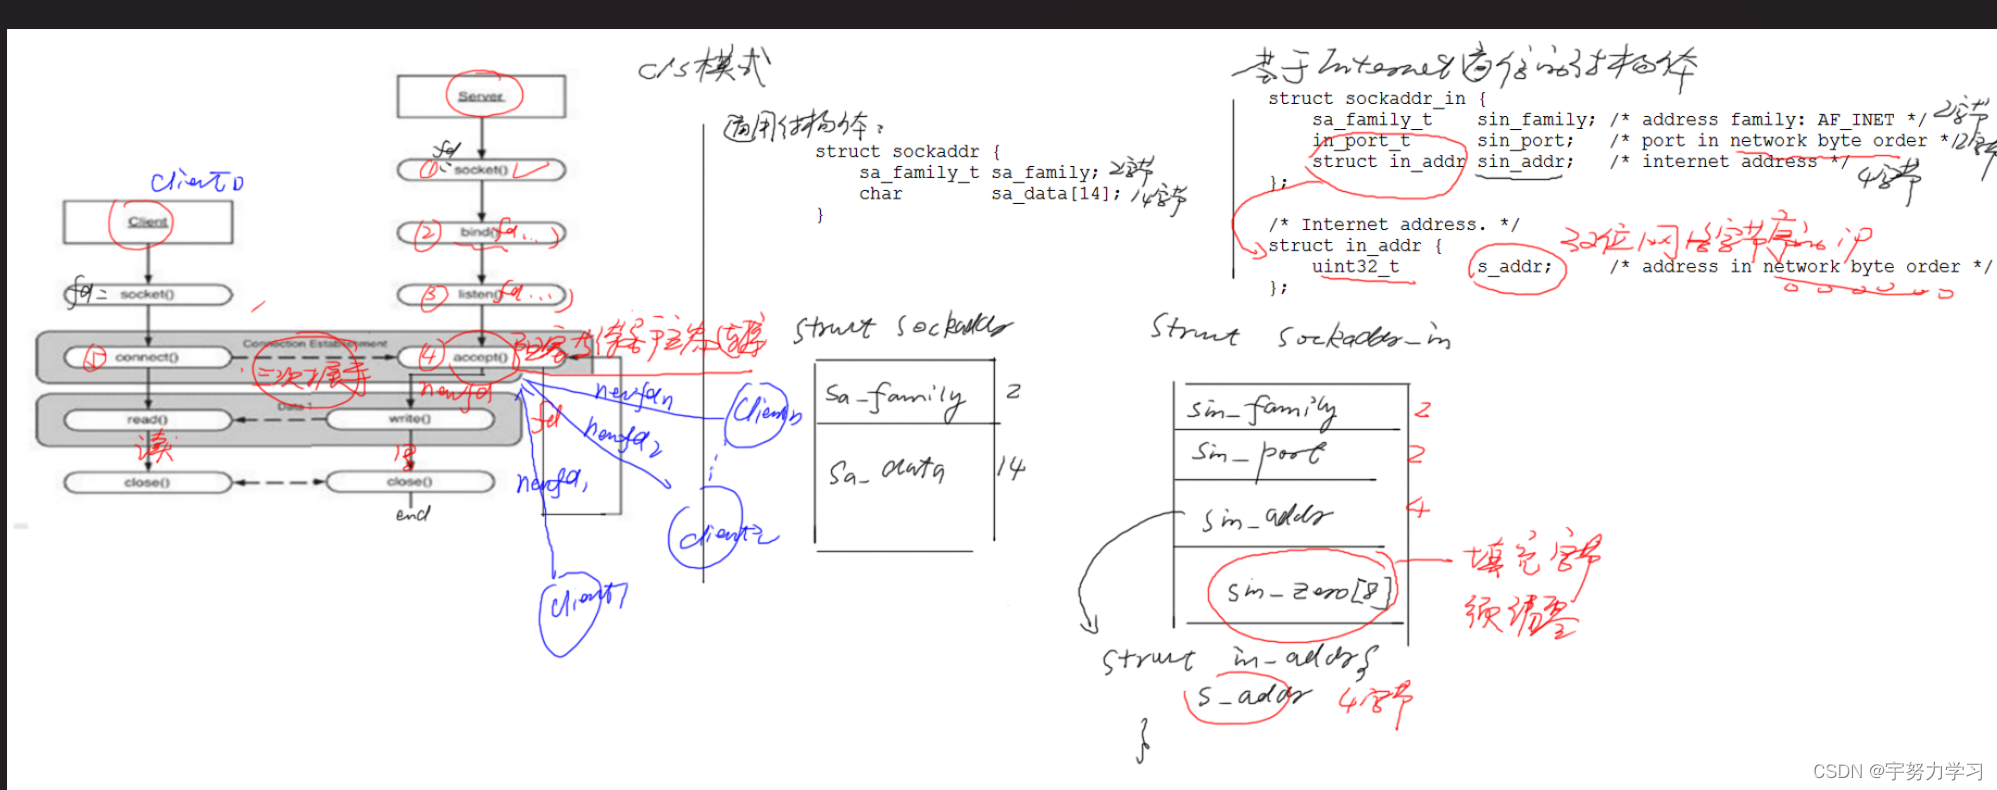 C/S模式
Server
fd
① socket()
② bind(fd...)
③ listen(fd...)
④ accept()
阻塞等待客户主动连接
newfd
write()
写
close()
end
Client
Client
fd= socket()
⑤ connect()
Connection Establishment
三次握手
read()
读
close()
fd
newfdn
newfd2
newfd1
Clientn
client2
client1
通用结构体:
struct sockaddr {
sa_family_t sa_family; 2字节
char sa_data[14]; 14字节
}
struct sockaddr
sa_family 2
sa_data 14
基于Internet通信的结构体
struct sockaddr_in {
sa_family_t sin_family; /* address family: AF_INET */ 2字节
in_port_t sin_port; /* port in network byte order */ 2字节
struct in_addr sin_addr; /* internet address */ 4字节
};
/* Internet address. */
struct in_addr {
32位网络字节序的IP
uint32_t s_addr; /* address in network byte order */
};
struct sockaddr_in
sin_family 2
sin_port 2
sin_addr 4
sin_zero[8]
填充字节
须清零
struct in_addr{
s_addr 4字节
}
CSDN @宇努力学习